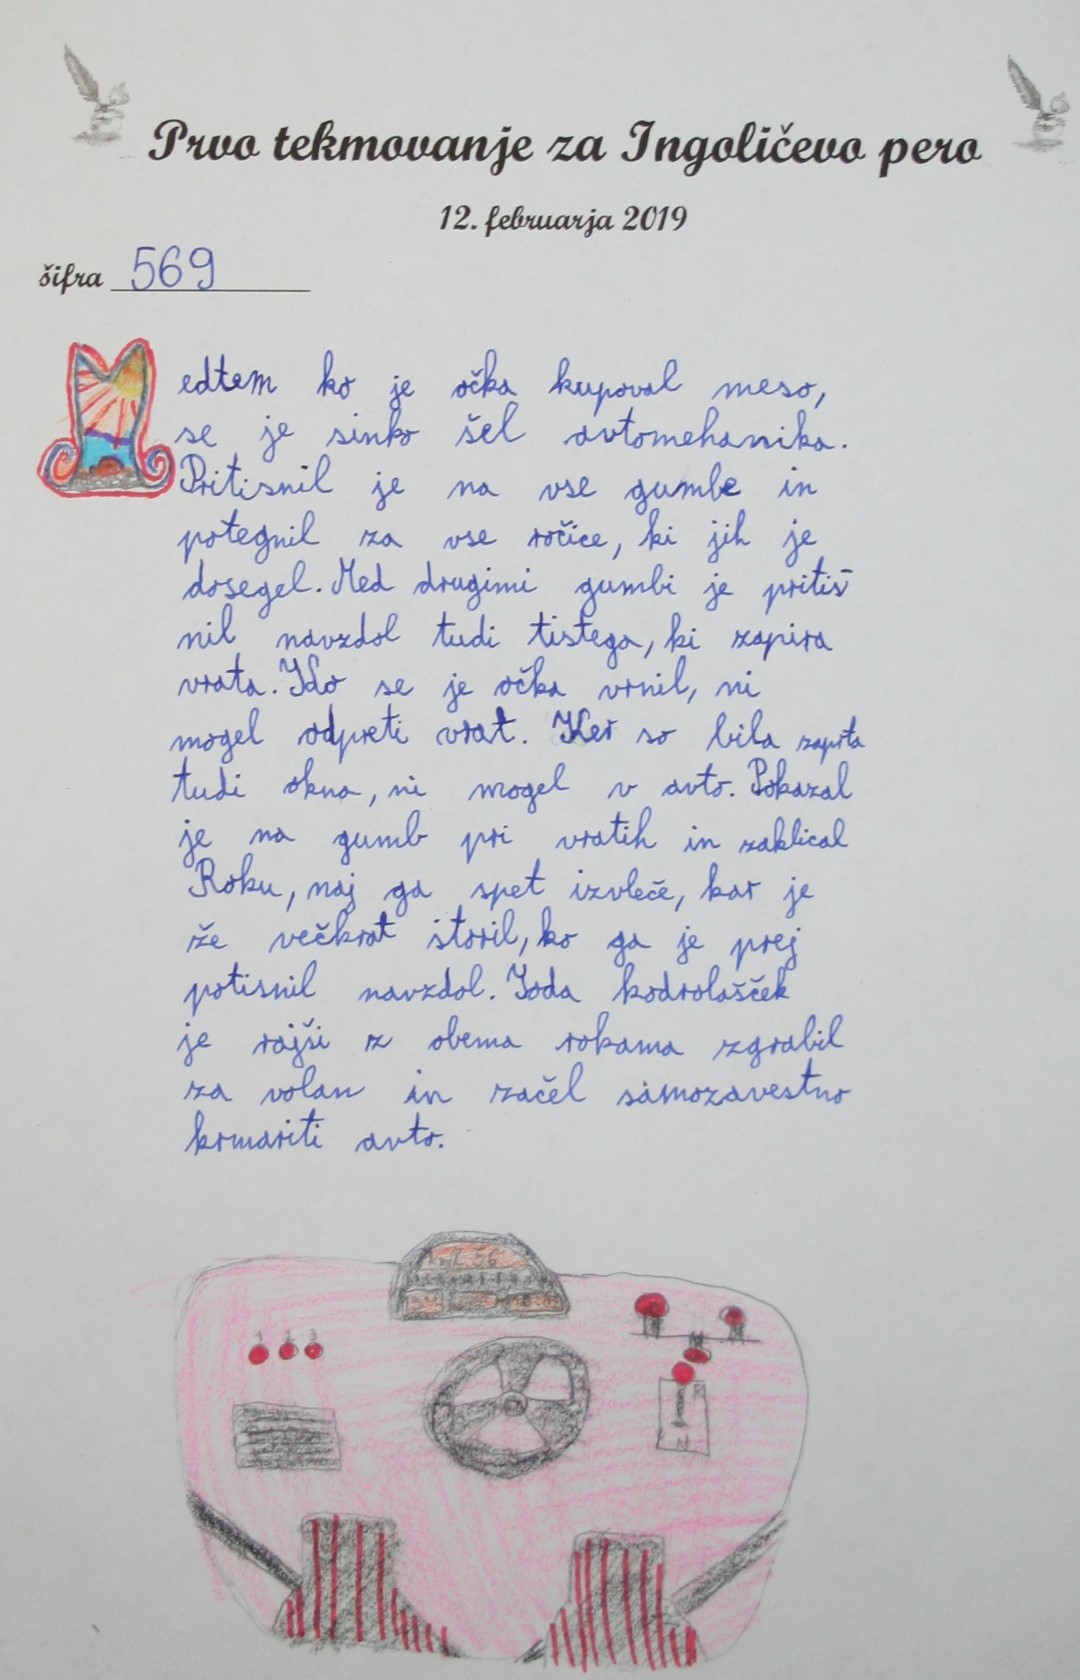 Prvo tekmovanje za Ingoličevo pero
12. februarja 2019
šifra 569
Medtem ko je očka kupoval meso,
se je sinko šel avtomehanika.
Pritisnil je na vse gumbe in
potegnil za vse ročice, ki jih je
dosegel. Med drugimi gumbi je pritis
nil navzdol tudi tistega, ki zapira
vrata. Ko se je očka vrnil, ni
mogel odpreti vrat. Ker so bila zaprta
tudi okna, ni mogel v avto. Pokazal
je na gumb pri vratih in zaklical
Roku, naj ga spet izvleče, kar je
že večkrat storil, ko ga je prej
potisnil navzdol. Toda kodrolašček
je rajši z obema rokama zgrabil
za volan in začel samozavestno
krmariti avto.
56
1 2 3
R
N